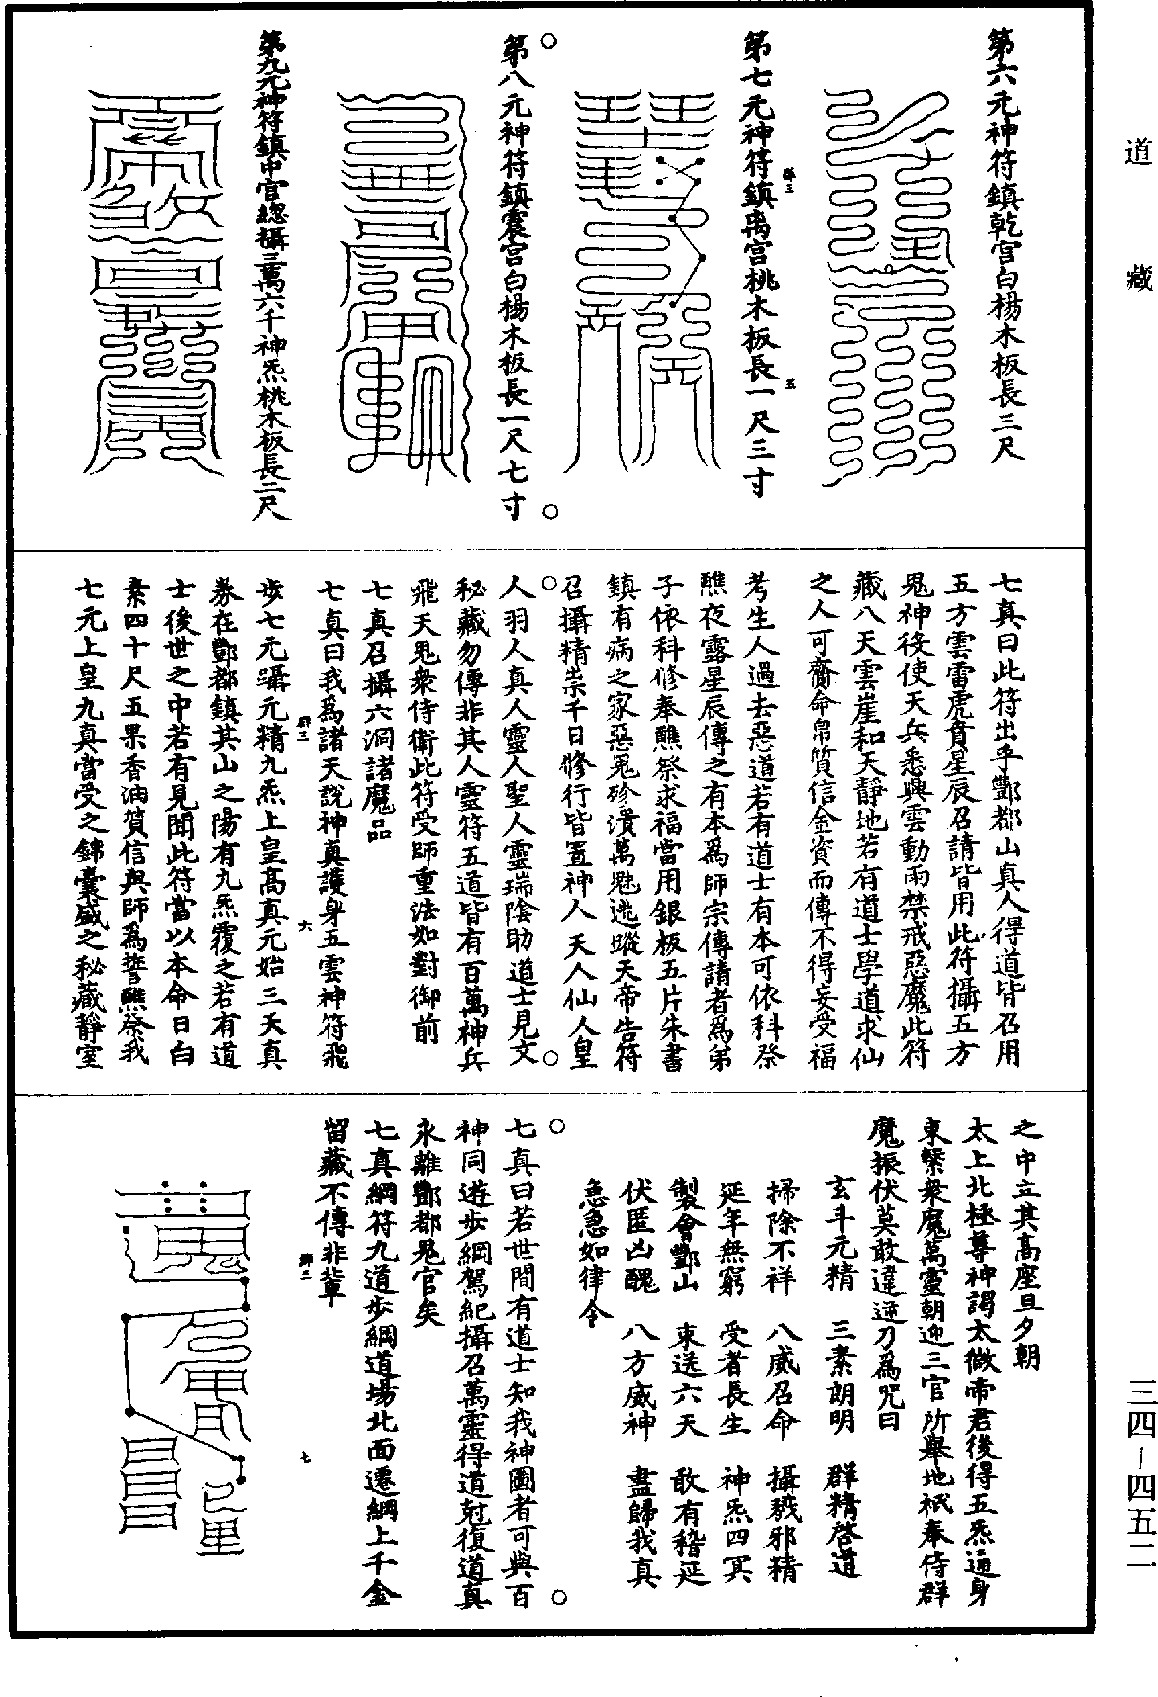 道藏
三四—四五二
第六元神符鎮乾宮白楊木板長三尺
第七元神符鎮离宮桃木板長一尺三寸
第八元神符鎮震宮白楊木板長一尺七寸
第九元神符鎮中宮總攝三萬六千神炁桃木板長二尺
七真曰此符出乎酆都山真人得道皆召用
五方雲雷虎賁星辰召請皆用此符攝五方
鬼神役使天兵悉興雲動雨禁戒惡魔此符
藏八天雲崖和天靜地若有道士學道求仙
之人可齎命帛質信金資而傳不得妄受福
考生人過去惡道若有道士有本可依科祭
醮夜露星辰傳之有本為師宗傳請者為弟
子依科修奉醮祭求福當用銀板五片朱書
鎮有病之家惡鬼殄潰萬魅逃蹤天帝告符
召攝精祟千日修行皆置神人天人仙人皇
人羽人真人靈人聖人靈瑞陰助道士見文
秘藏勿傳非其人靈符五道皆有百萬神兵
飛天鬼衆侍衛此符受師重法如對御前
七真召攝六洞諸魔品
七真曰我為諸天說神真護身五雲神符飛
步七元躡元精九炁上皇高真元始三天真
券在酆都鎮其山之陽有九炁覆之若有道
士後世之中若有見聞此符當以本命日白
素四十尺五果香油質信與師為誓醮祭我
七元上皇九真當受之錦囊盛之秘藏靜室
之中立其高座旦夕朝
太上北極尊神謁太微帝君後得五炁通身
東繫衆魔萬靈朝迎三官所舉地祇奉侍群
魔振伏莫敢違逆乃為咒曰
玄斗元精 三素朗明 群精啓道
掃除不祥 八威召命 攝殺邪精
延年無窮 受者長生 神炁四冥
製會酆山 束送六天 敢有稽延
伏匿凶醜 八方威神 盡歸我真
急急如律令
七真曰若世間有道士知我神圖者可與百
神同遊步綱駕紀攝召萬靈得道尅復道真
永離酆都鬼官矣
七真綱符九道步綱道場北面遷綱上千金
留藏不傳非輩